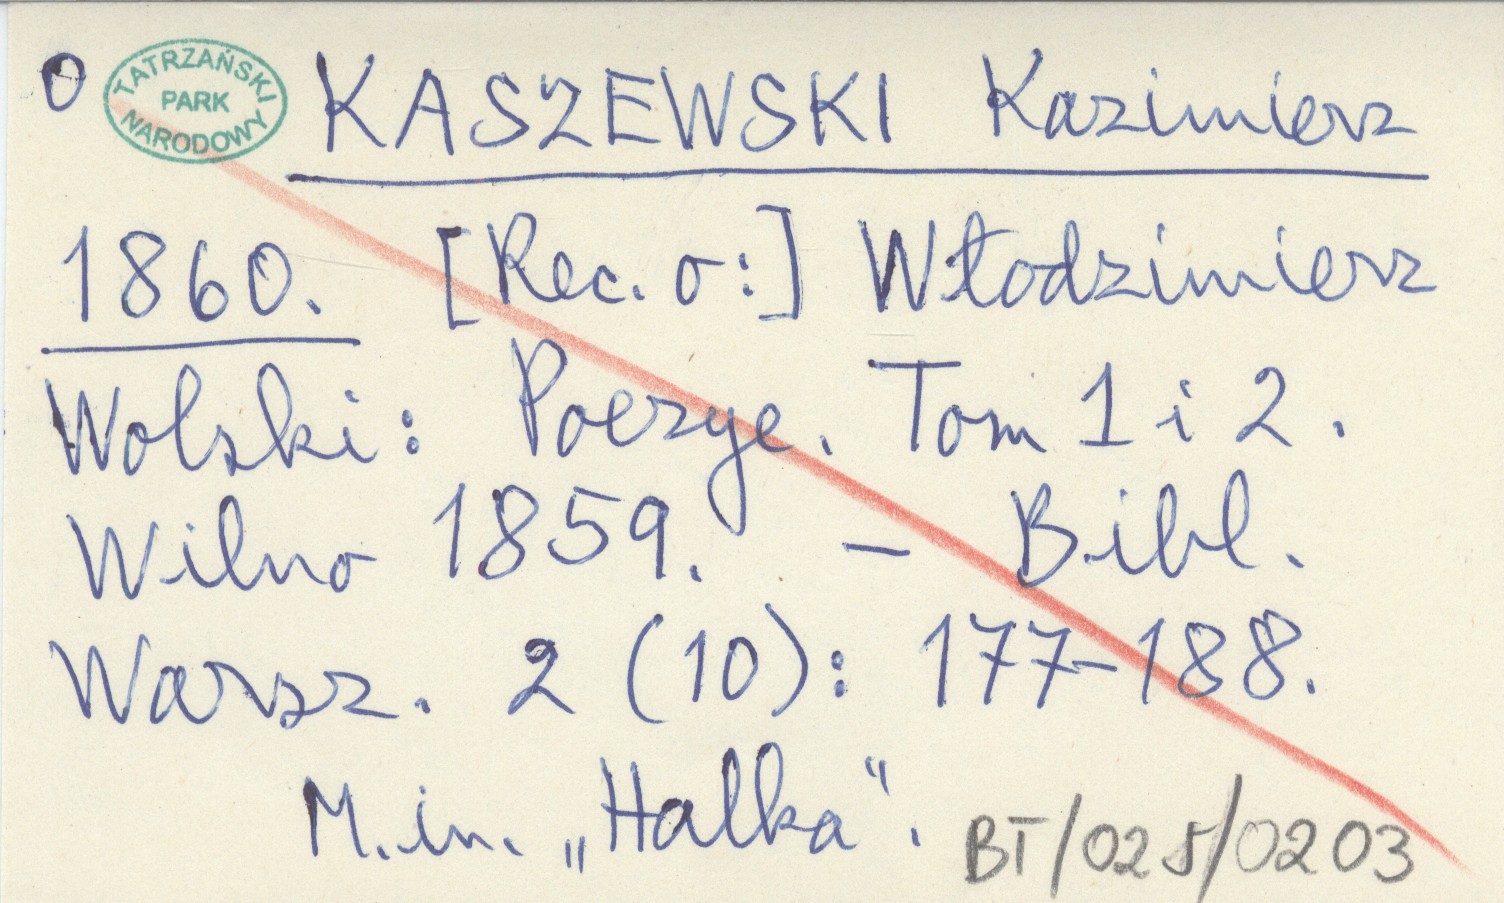 O TATRZAŃSKI PARK NARODOWY KASZEWSKI Kazimierz
1860. [Rec. o:] Włodzimierz
Wolski: Poezye. Tom 1 i 2.
Wilno 1859. – Bibl.
Warsz. 2 (10): 177-188.
M.in. „Halka".
BT/025/0203